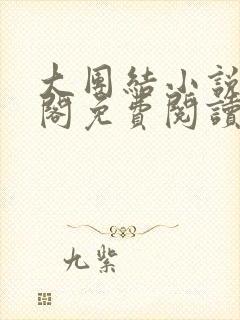 大團結小說
閣免費閱讀
九紫